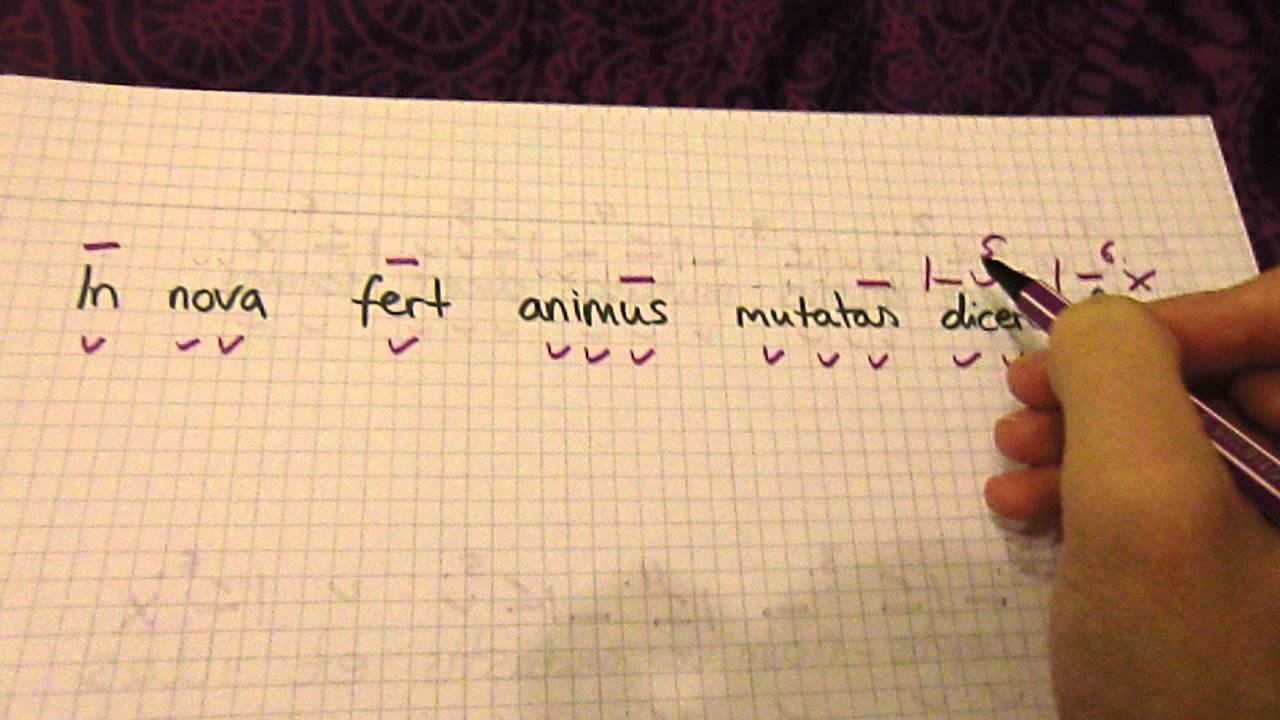 5 6
In nova fert animus mutatas dicer